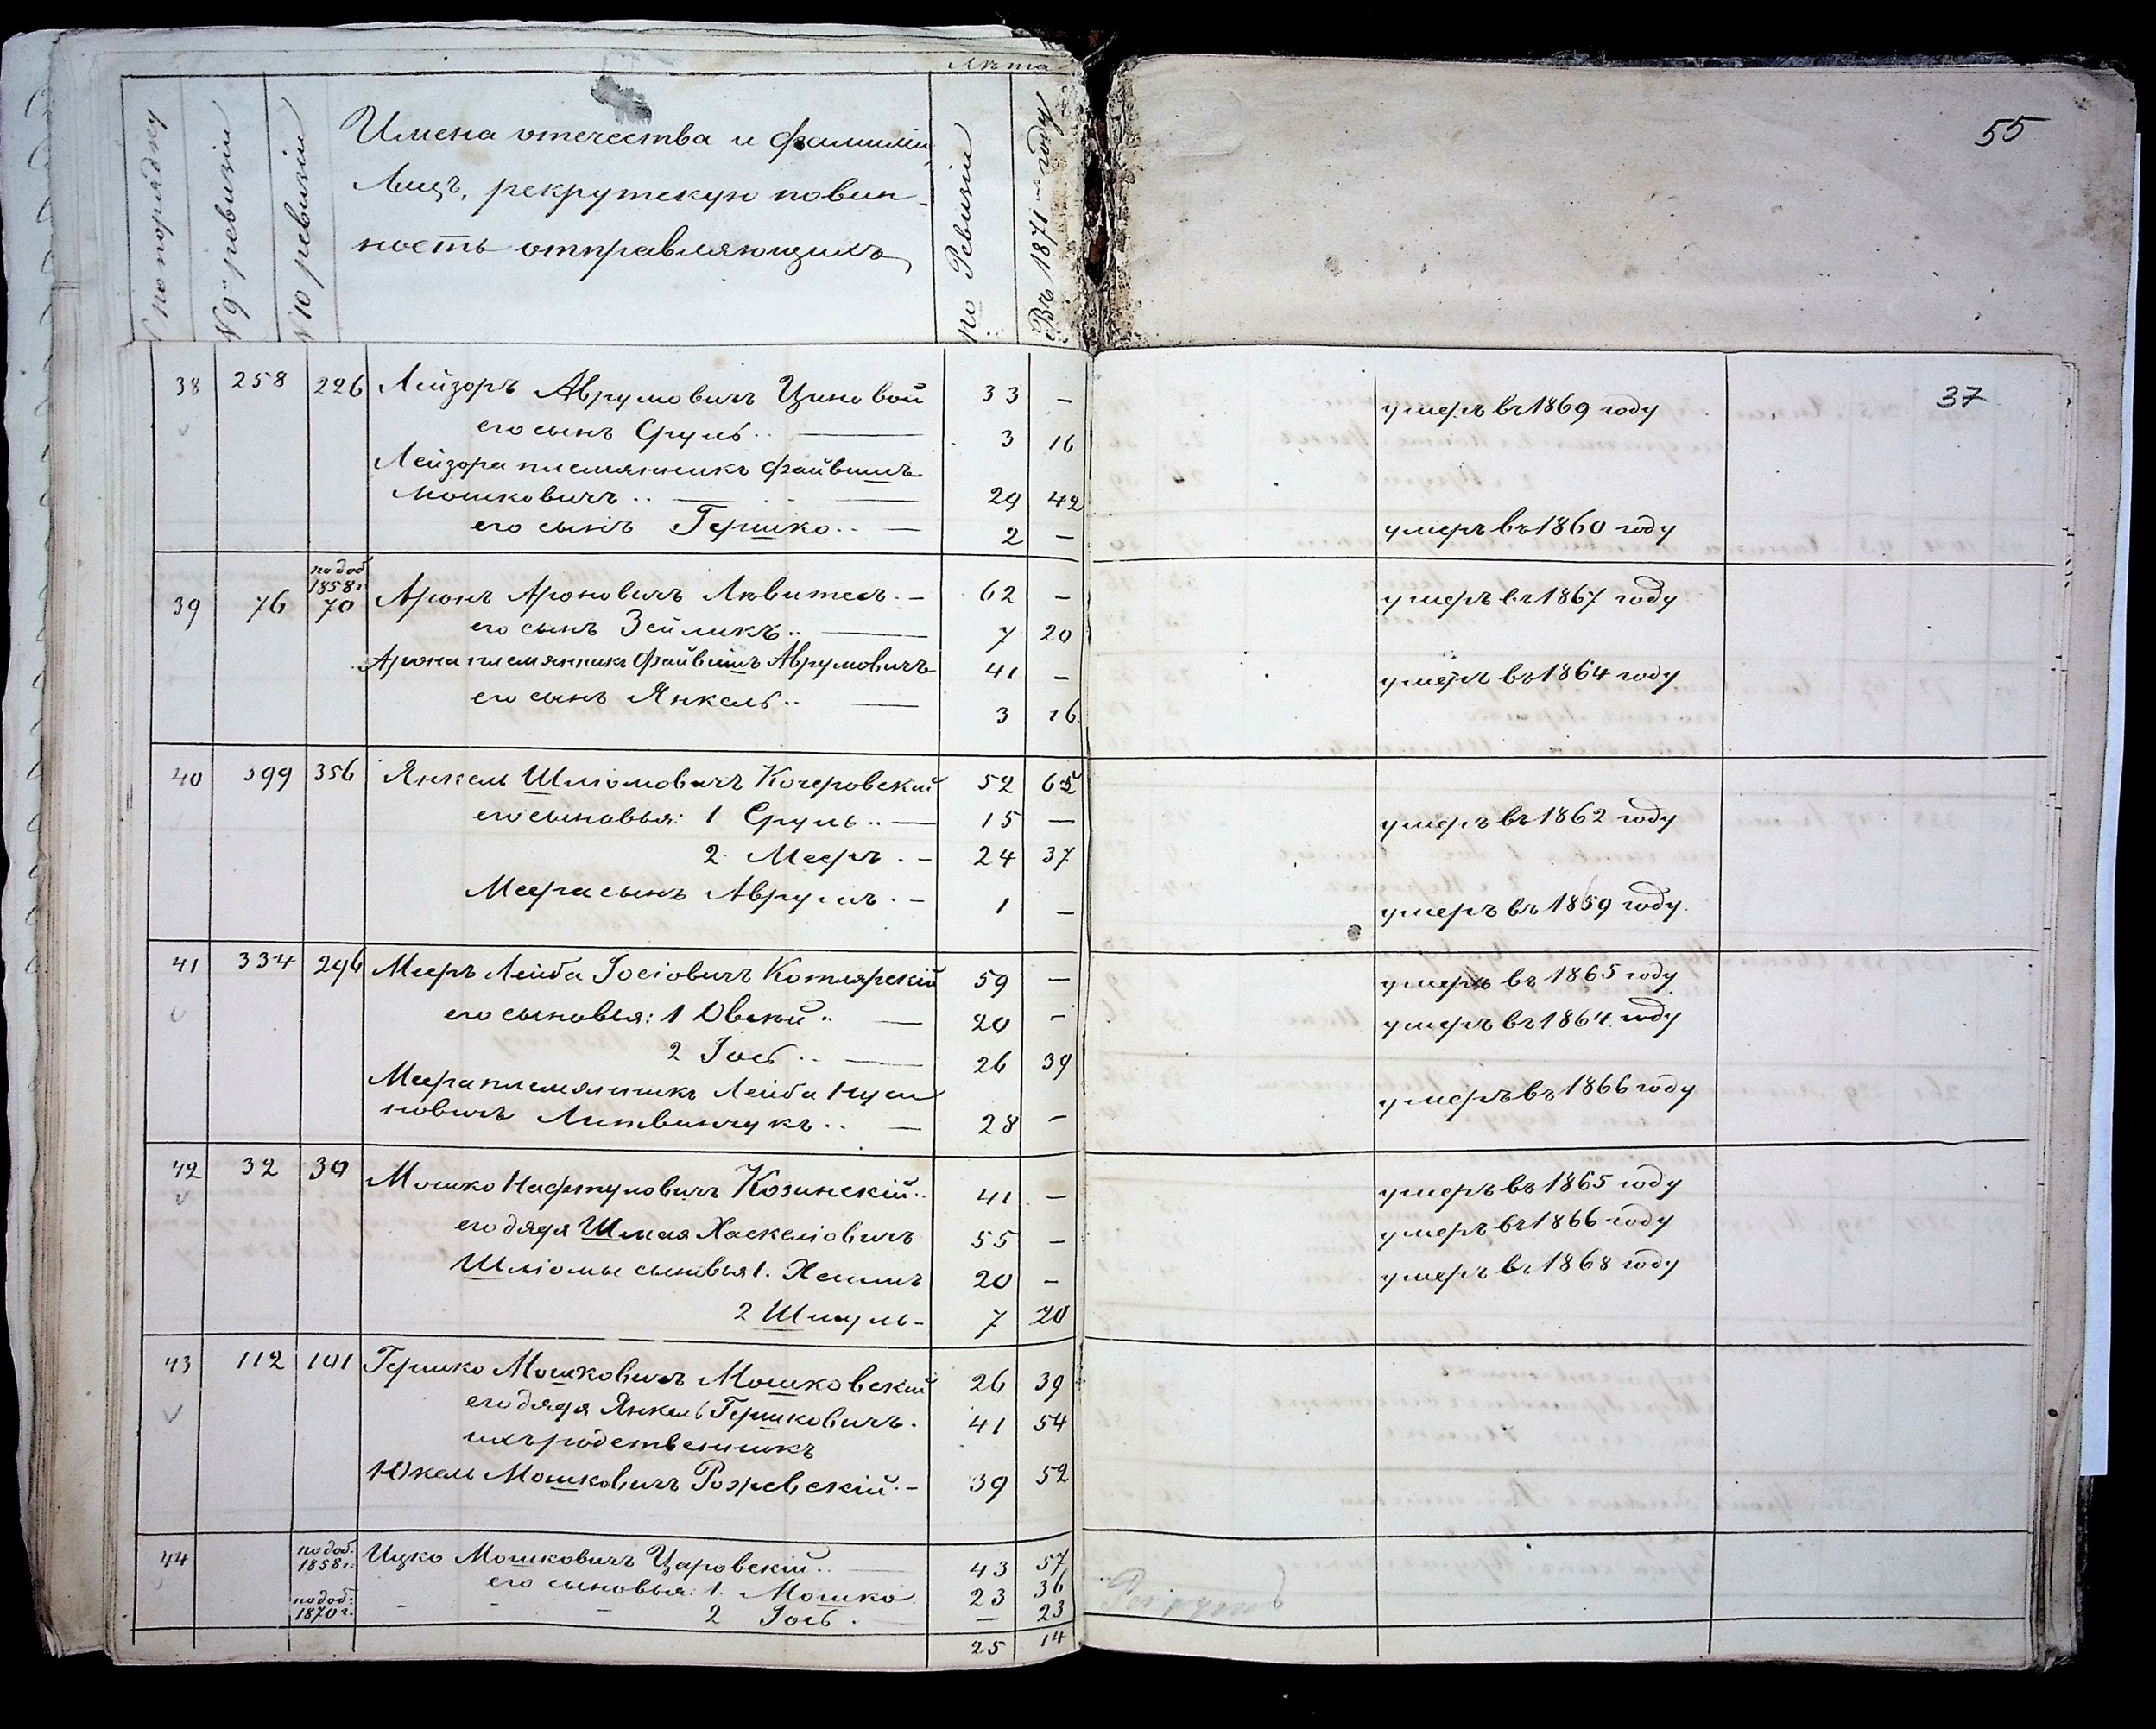 Лѣта
№ по порядку
№ 9й ревизіи
№ 10 ревизіи
Имена отечества и фамиліи
Лицъ, рекрутскую повин-
ность отправляющихъ
по Ревизіи
Въ 1871мъ году
55
37
38 258 226 Лейзоръ Аврумовичъ Циновой 33 – умеръ въ 1869 году
его сынъ Сруль.. — 3 16
Лейзора племянникъ Файвишъ
Мошковичъ.. — 29 42
его сынъ Гершко.. — 2 – умеръ въ 1860 году
по доб.
1858 г.
39 76 70 Аронъ Ароновичъ Любитель. – 62 – умеръ въ 1867 году
его сынъ Зейликъ.. — 7 20
Арона племянникъ Файвишъ Аврумовичъ 41 – умеръ въ 1864 году
его сынъ Янкель.. — 3 16
40 399 356 Янкель Шліомовичъ Кочеровскій 52 65
его сыновья: 1 Сруль.. — 15 — умеръ въ 1862 году
2. Мееръ. – 24 37
Меера сынъ Аврумъ. – 1 – умеръ въ 1859 году.
41 334 296 Мееръ Лейба Іосіовичъ Котлярскій 59 — умеръ въ 1865 году
его сыновья: 1 Овсей.. — 20 – умеръ въ 1864 году
2 Іось.. — 26 39
Меера племянникъ Лейба Нуси
новичъ Литвинчукъ.. — 28 – умеръ въ 1866 году
42 32 30 Мошко Нафтуловичъ Козинскій.. 41 – умеръ въ 1865 году
его дядя Шмая Хаскеліовичъ 55 – умеръ въ 1866 году
Шліомы сыновья 1. Хаимъ 20 – умеръ въ 1868 году
2 Шмуль – 7 20
43 112 101 Гершко Мошковичъ Мошковскій 26 39
его дядя Янкель Гершковичъ. 41 54
ихъ родственникъ
Юкель Мошковичъ Розževскій. – 39 52
44 по доб.
1858 г. Ицко Мошковичъ Царовскій.. 43 57
его сыновья: 1. Мошко 23 36
по доб.
1870 г. - - - 2 Іось. – 23
25 14